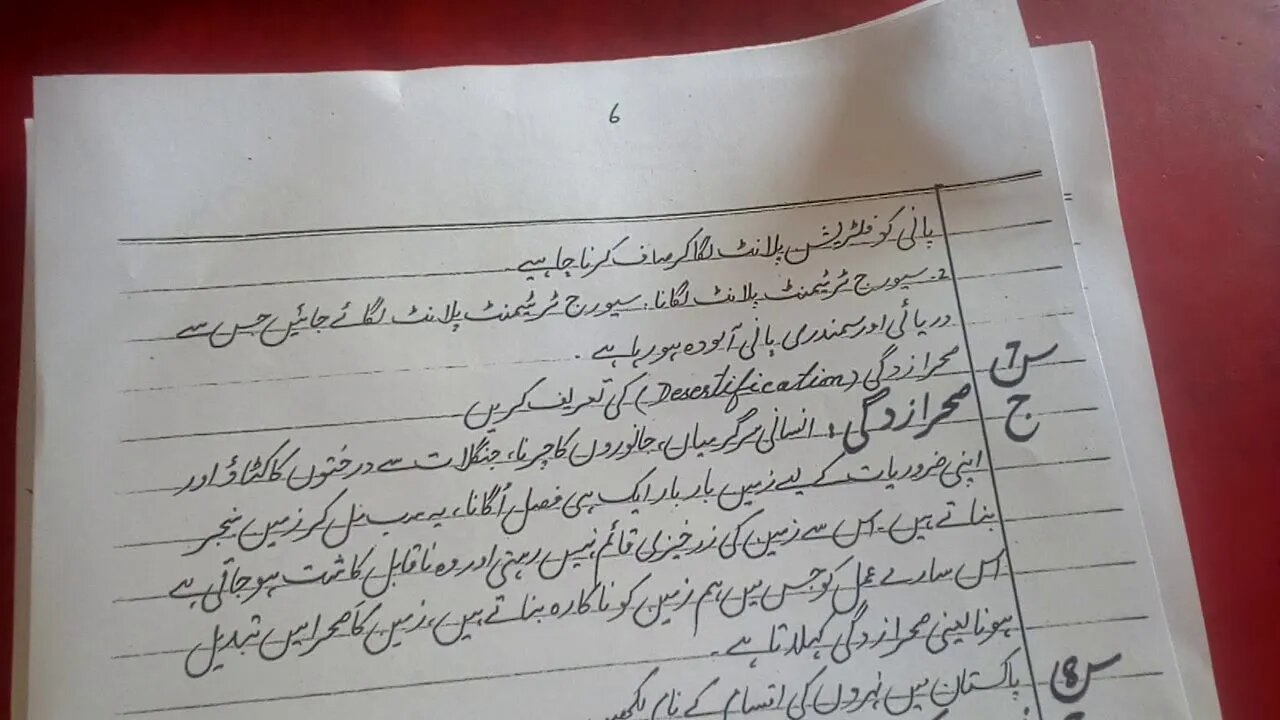 6
پانی کو فلٹریشن پلانٹ لگا کر صاف کرنا چاہیے۔
2۔ سیوریج ٹریٹمنٹ پلانٹ لگانا: سیوریج ٹریٹمنٹ پلانٹ لگائے جائیں جس سے
دریائی اور سمندری پانی آلودہ ہو رہا ہے۔
س7 صحرازدگی (Desertification) کی تعریف کریں
ج صحرازدگی: انسانی سرگرمیاں، جانوروں کا چرنا، جنگلات سے درختوں کا کٹاؤ اور
اپنی ضروریات کے لیے زمین بار بار ایک ہی فصل اُگانا، یہ سب مل کر زمین بنجر
بناتے ہیں۔ اس سے زمین کی زرخیزی قائم نہیں رہتی اور وہ ناقابل کاشت ہو جاتی ہے
اس سارے عمل کو جس میں ہم زمین کو ناکارہ بناتے ہیں، زمین کا صحرا میں تبدیل
ہونا یعنی صحرازدگی کہلاتا ہے۔
س8 پاکستان میں نہروں کی اقسام کے نام لکھیں